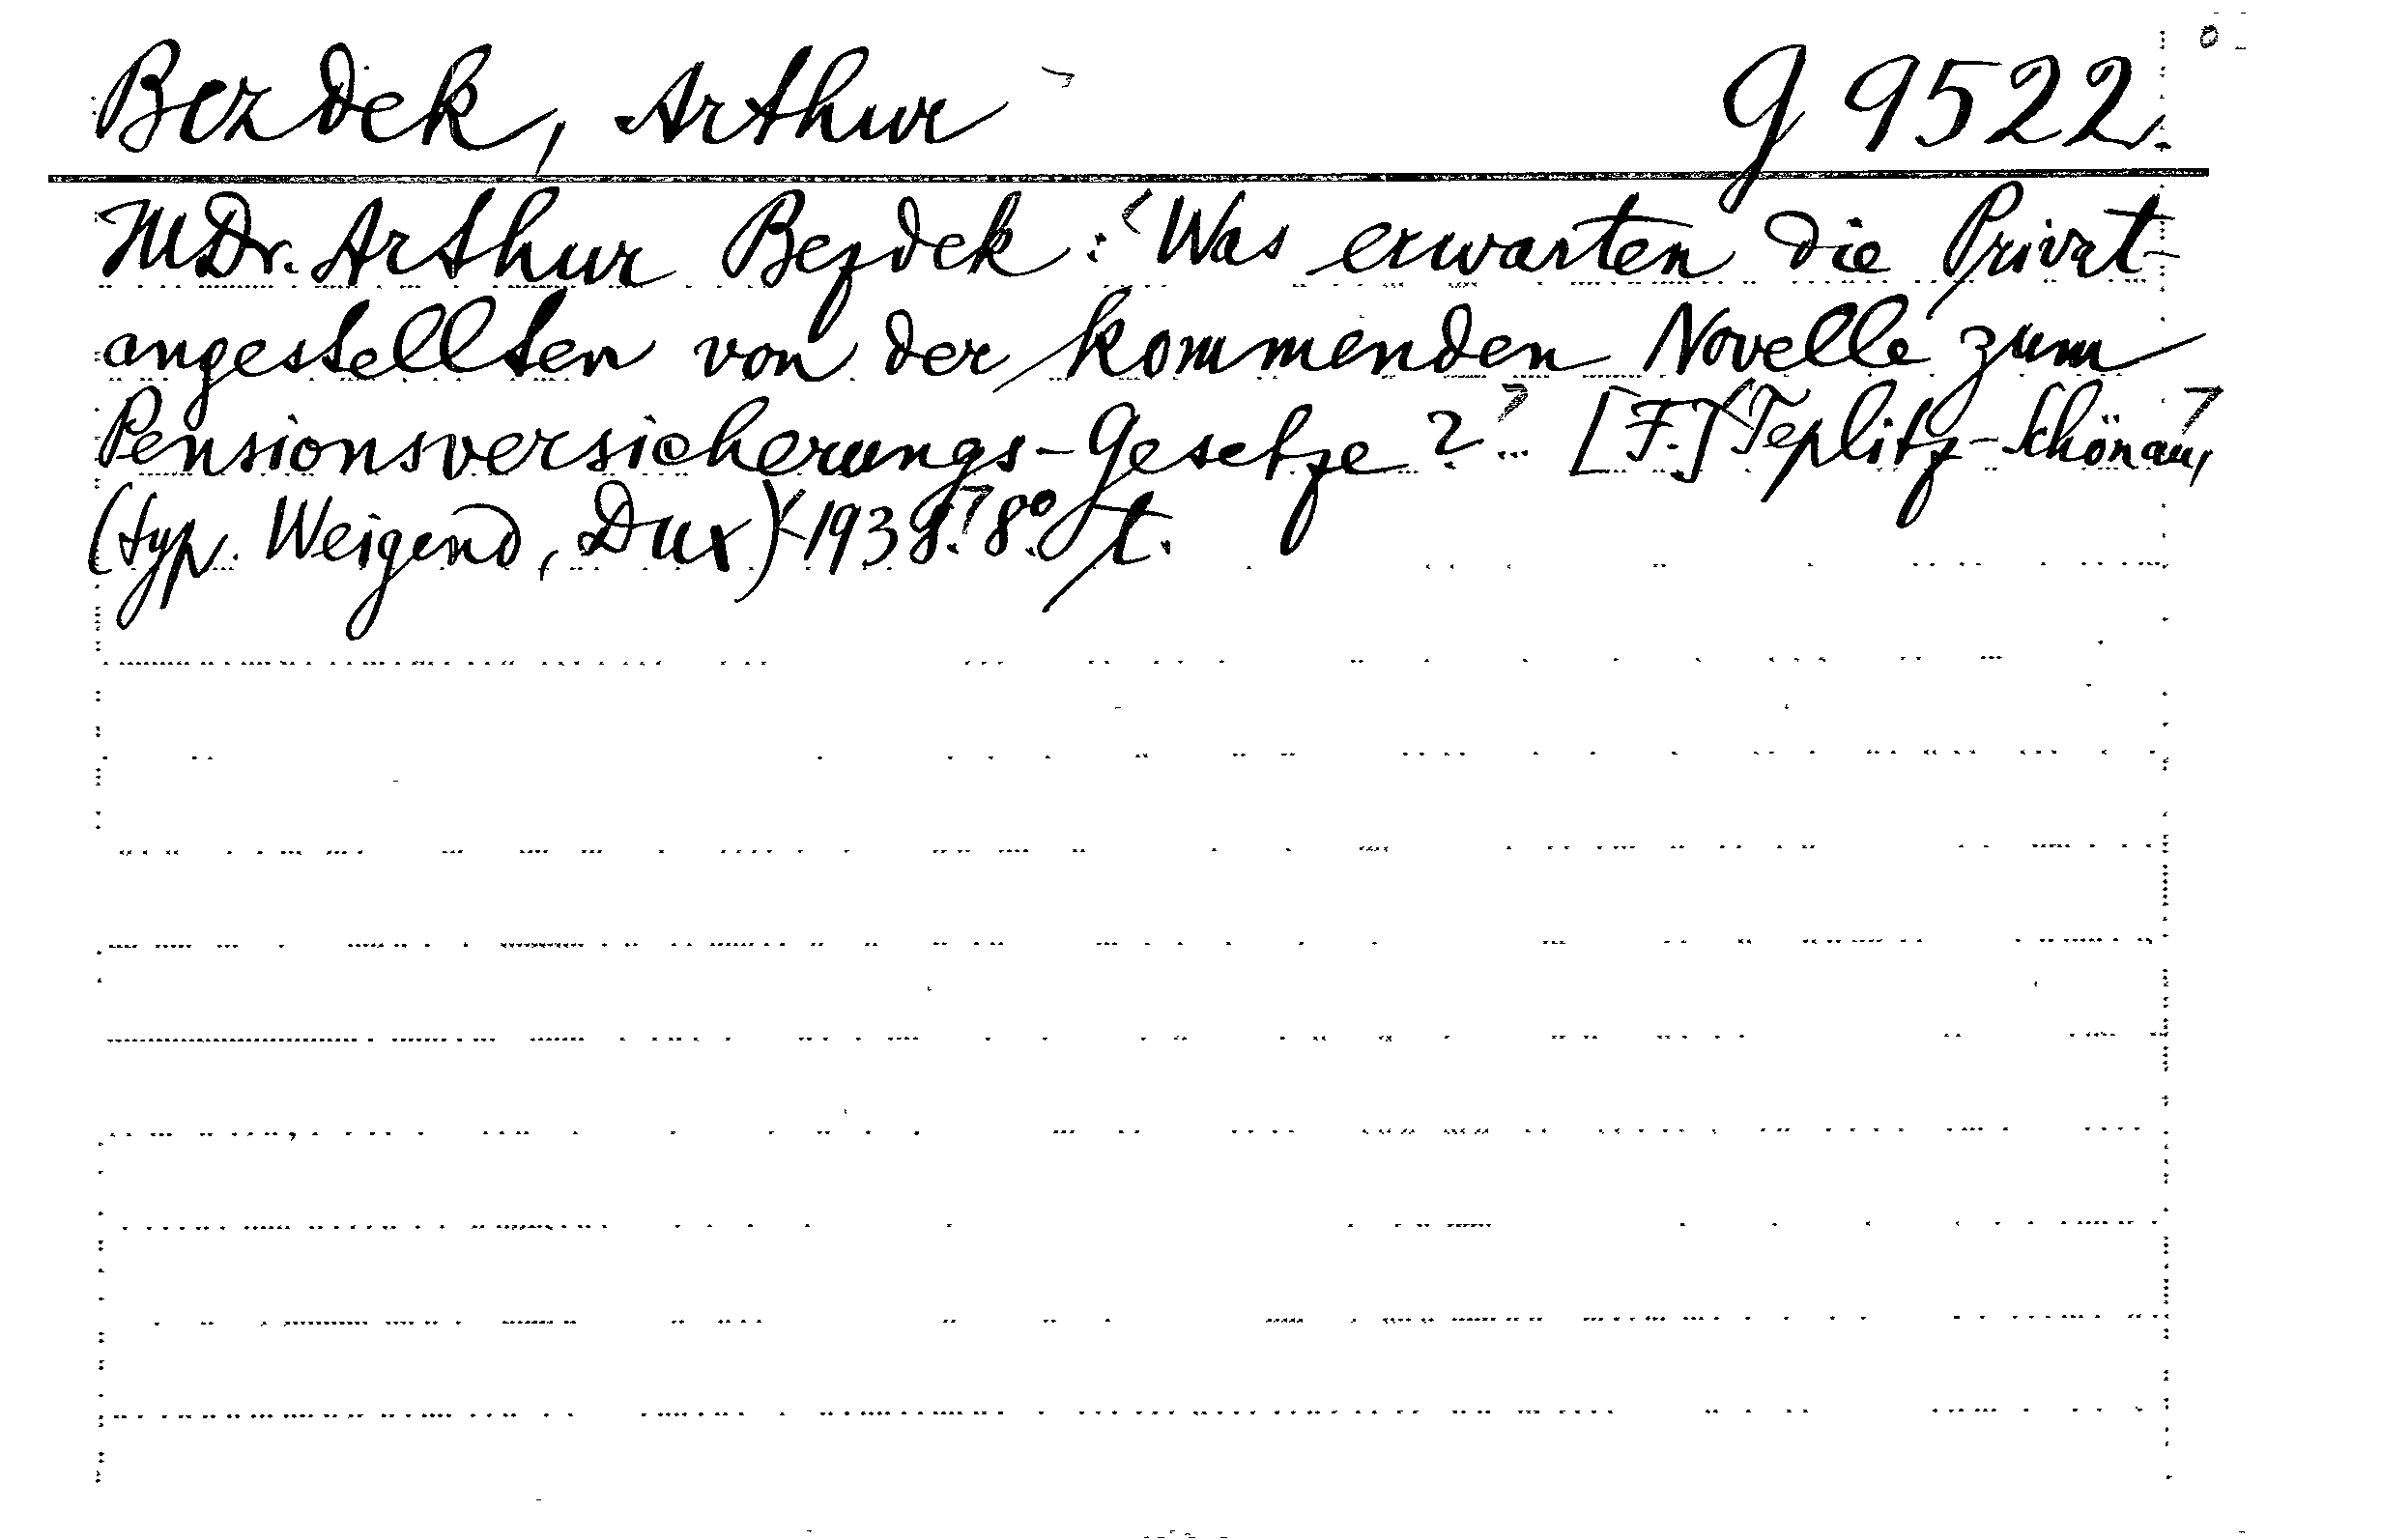 Bezdek, Arthur G 9522.
MDr. Arthur Bezdek: Was erwarten die Privat-
angestellten von der kommenden Novelle zum
Pensionsversicherungs-Gesetze? [F.] Teplitz-Schönau,
(typ. Weigend, Dux) 1938. 8° t.